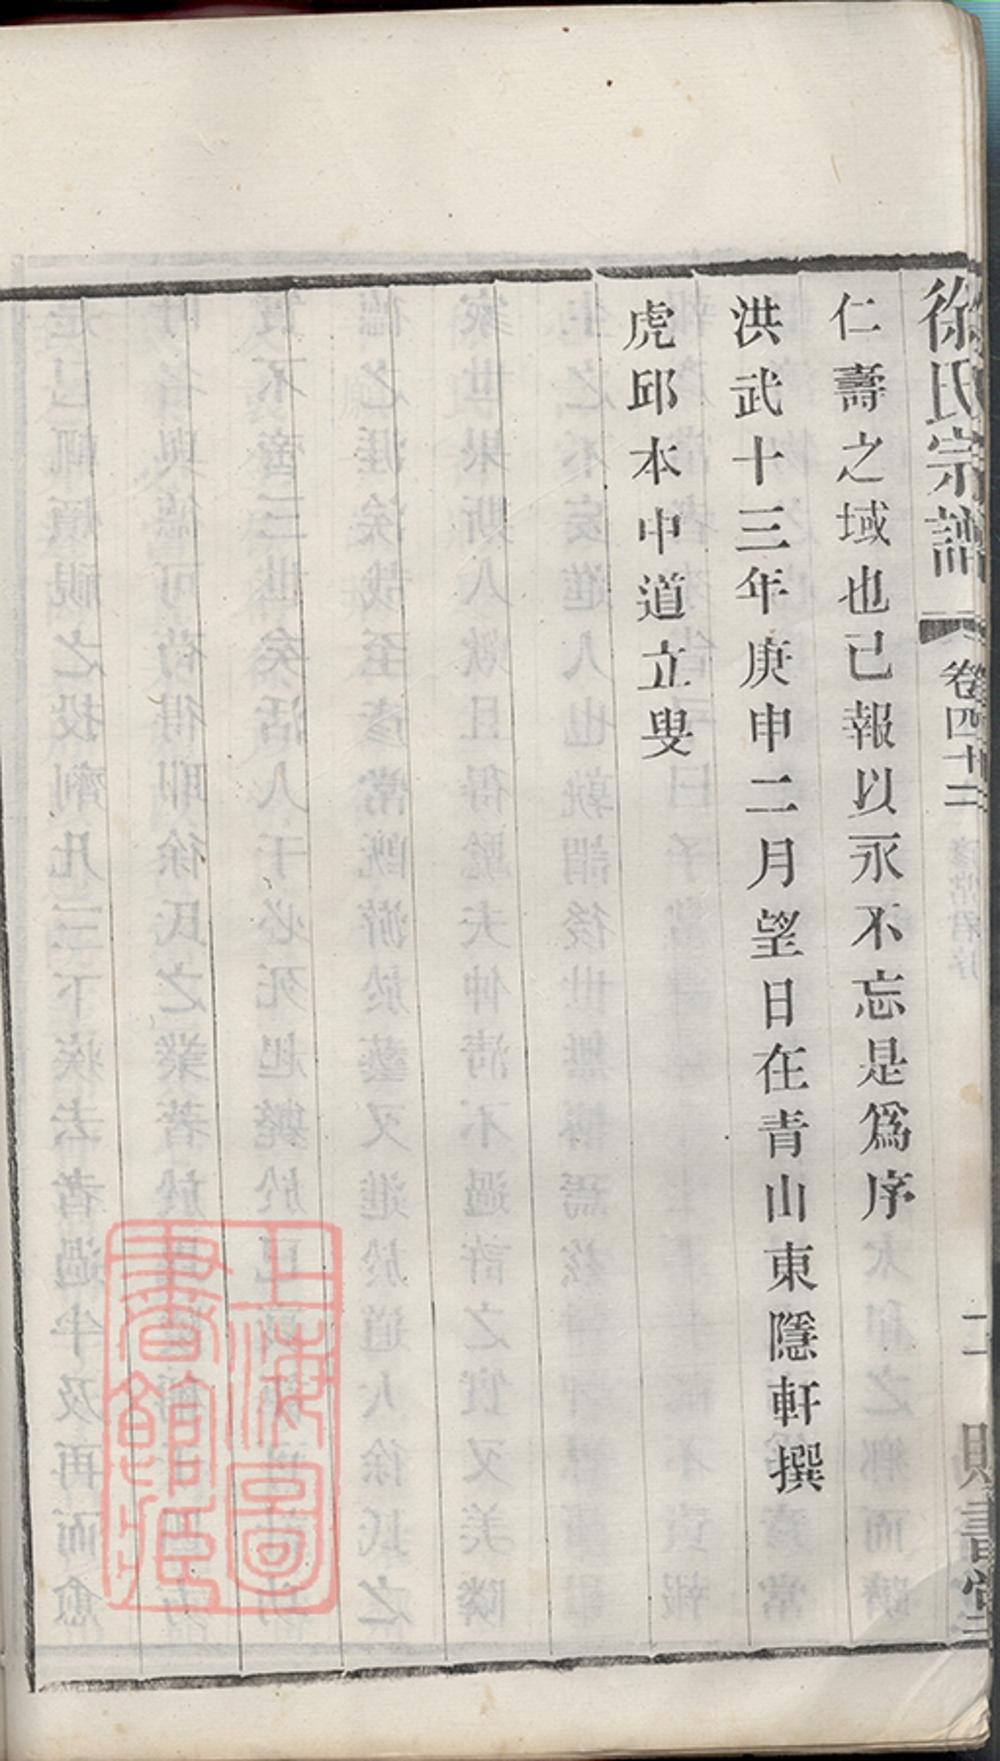 徐氏宗譜
卷四十二
二
賜書堂
仁壽之域也已報以永不忘是爲序
洪武十三年庚申二月望日在青山東隱軒撰
虎邱本中道立叟
上海圖
書館藏